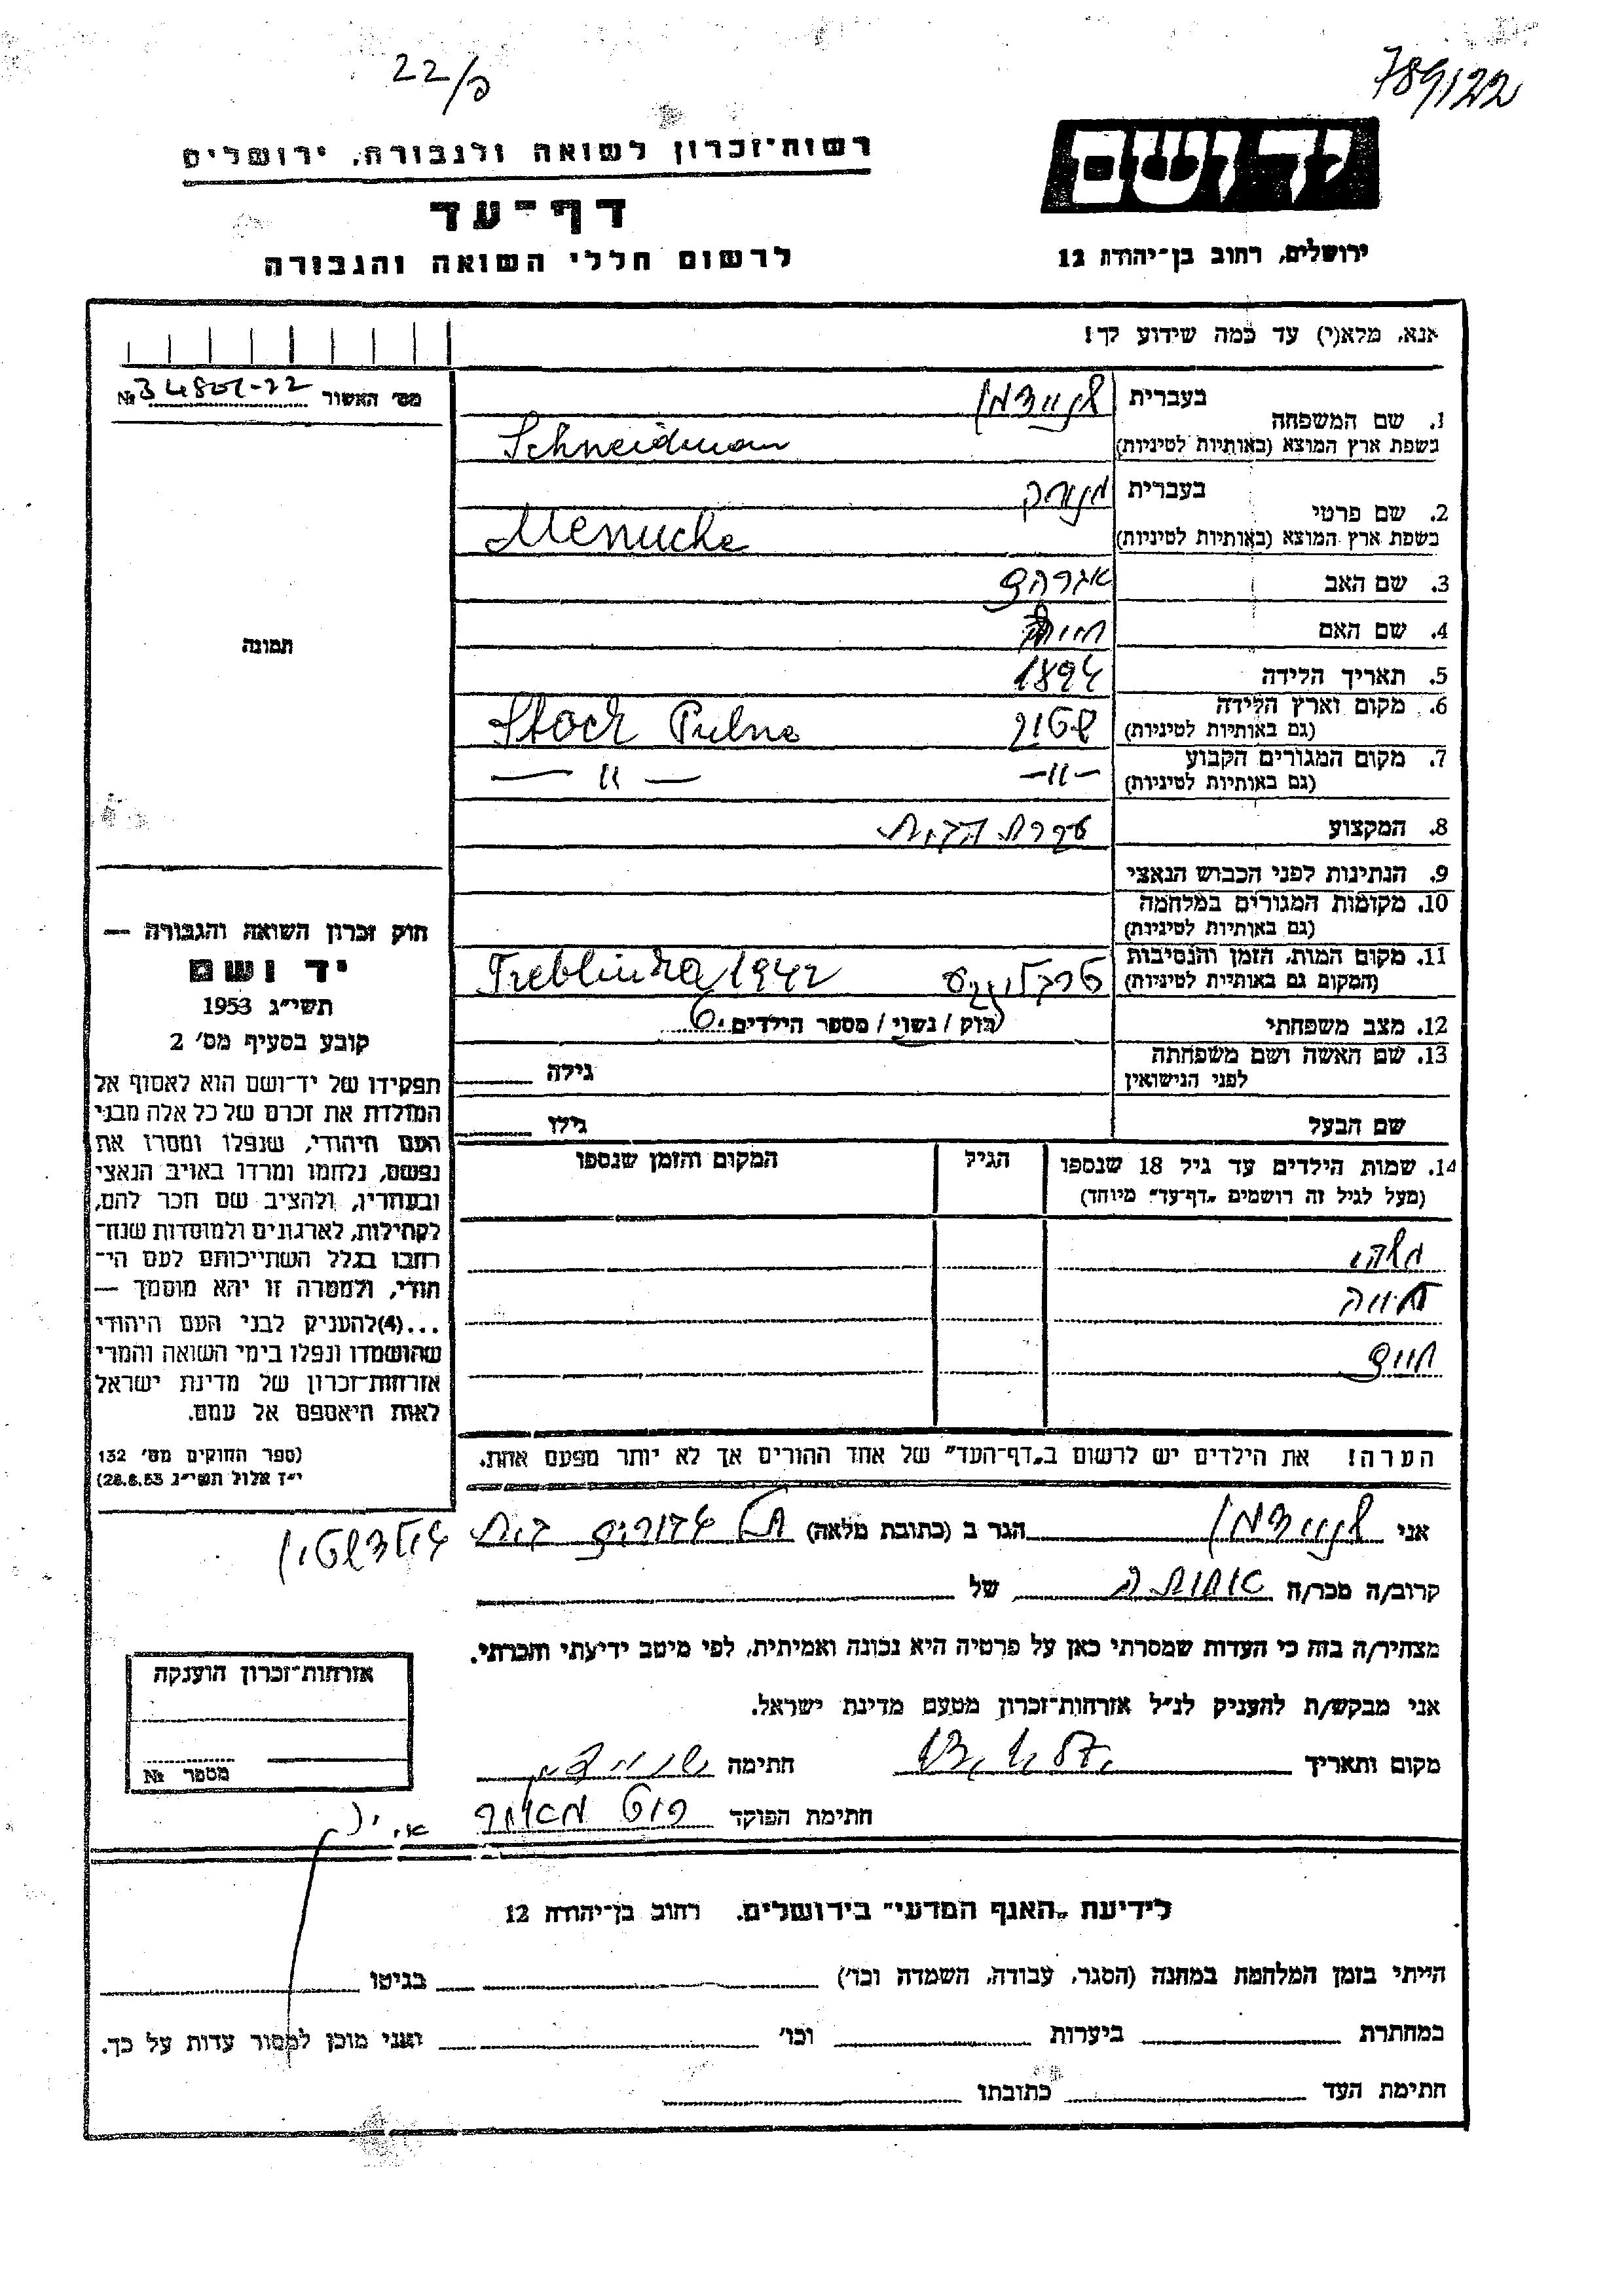 22/פ
789/22
יד ושם
רשות־זכרון לשואה ולגבורה, ירושלים
דף־עד
לרשום חללי השואה והגבורה
ירושלים, רחוב בן־יהודה 12
אנא, מלא(י) עד כמה שידוע לך!
מס' האשור №
1. שם המשפחה
בעברית שניידמן
בשפת ארץ המוצא (באותיות לטיניות) Schneidman
2. שם פרטי
בעברית
בשפת ארץ המוצא (באותיות לטיניות) Menuche
3. שם האב אברהם
4. שם האם
5. תאריך הלידה 1894
6. מקום וארץ הלידה
(גם באותיות לטיניות) שטוק Stock
7. מקום המגורים הקבוע
(גם באותיות לטיניות) -11- — 11 —
8. המקצוע עקרת הבית
9. הנתינות לפני הכבוש הנאצי
10. מקומות המגורים במלחמה
(גם באותיות לטיניות)
11. מקום המות, הזמן והנסיבות
(המקום גם באותיות לטיניות) Treblinka 1942
12. מצב משפחתי רוק / נשוי / מספר הילדים 6
13. שם האשה ושם משפחתה
לפני הנישואין
גילה
שם הבעל גילו
14. שמות הילדים עד גיל 18 שנספו
(מעל לגיל זה רושמים „דף־עד" מיוחד)
הגיל
המקום והזמן שנספו
משה
חיים
הערה! את הילדים יש לרשום ב„דף־העד" של אחד ההורים אך לא יותר מפעם אחת.
תמונה
חוק זכרון השואה והגבורה —
יד ושם
תשי"ג 1953
קובע בסעיף מס' 2
תפקידו של יד־ושם הוא לאסוף אל
המולדת את זכרם של כל אלה מבני
העם היהודי, שנפלו ומסרו את
נפשם, נלחמו ומרדו באויב הנאצי
ובעוזריו, ולהציב שם וזכר להם,
לקהילות, לארגונים ולמוסדות שנח־
רבו בגלל השתייכותם לעם הי־
הודי, ולמטרה זו יהא מוסמך —
...(4)להעניק לבני העם היהודי
שהושמדו ונפלו בימי השואה והמרי
אזרחות־זכרון של מדינת ישראל
לאות היאספם אל עמם.
(ספר החוקים מס' 132
י"ז אלול תשי"ג 28.8.53)
אני שניידמן הגר ב (כתובת מלאה)
קרוב/ה מכר/ה של
מצהיר/ה בזה כי העדות שמסרתי כאן על פרטיה היא נכונה ואמיתית, לפי מיטב ידיעתי והכרתי.
אני מבקש/ת להעניק לנ"ל אזרחות־זכרון מטעם מדינת ישראל.
מקום ותאריך חתימה
חתימת הפוקד
אזרחות־זכרון הוענקה
מספר №
לידיעת „האגף המדעי" בירושלים. רחוב בן־יהודה 12
הייתי בזמן המלחמה במחנה (הסגר, עבודה, השמדה וכו') בגיטו
במחתרת ביערות וכו' ואני מוכן למסור עדות על כך.
חתימת העד כתובתו